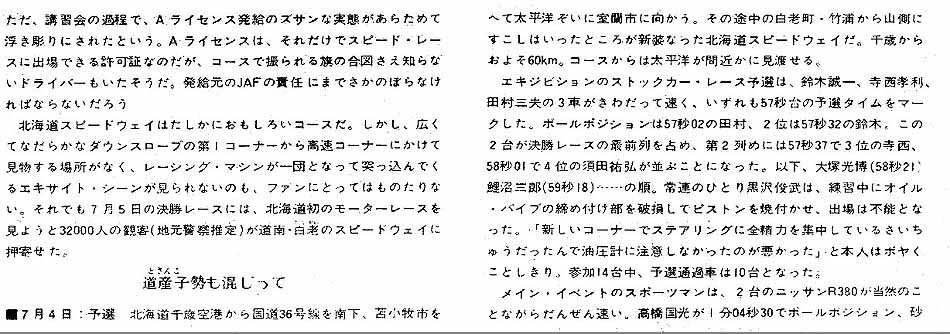 ただ、講習会の過程で、A ライセンス発給のズサンな実態があらためて
浮き彫りにされたという。A ライセンスは、それだけでスピード・レー
スに出場できる許可証なのだが、コースで振られる旗の合図さえ知らな
いドライバーもいたそうだ。発給元のJAFの責任にまでさかのぼらなけ
ればならないだろう
北海道スピードウェイはたしかにおもしろいコースだ。しかし、広く
てなだらかなダウンスロープの第1コーナーから高速コーナーにかけて
見物する場所がなく、レーシング・マシンが一団となって突っ込んでく
るエキサイト・シーンが見られないのも、ファンにとってはものたりな
い。それでも7月5日の決勝レースには、北海道初のモーターレースを
見ようと32000人の観客(地元警察推定)が道南・白老のスピードウェイに
押寄せた。
どさんこ
道産子勢も混じって
■7月4日:予選 北海道千歳空港から国道36号線を南下、苫小牧市を
へて太平洋ぞいに室蘭市に向かう。その途中の白老町・竹浦から山側に
すこしはいったところが新装なった北海道スピードウェイだ。千歳から
およそ60km。コースからは太平洋が間近かに見渡せる。
エキジビションのストックカー・レース予選は、鈴木誠一、寺西孝利、
田村三夫の3車がきわだって速く、いずれも57秒台の予選タイムをマー
クした。ポールポジションは57秒02の田村、2位は57秒32の鈴木。この
2台が決勝レースの最前列を占め、第2列めには57秒37で3位の寺西、
58秒01で4位の須田祐弘が並ぶことになった。以下、大塚光博(58秒21)
鯉沼三郎(59秒18)……の順。常連のひとり黒沢俊武は、練習中にオイル
・パイプの締め付け部を破損してピストンを焼付かせ、出場は不能とな
った。「新しいコーナーでステアリングに全精力を集中しているさいち
ゅうだったんで油圧計に注意しなかったのが悪かった」と本人はボヤく
ことしきり。参加14台中、予選通過車は10台となった。
メイン・イベントのスポーツマンは、2台のニッサンR380が当然のこ
とながらだんぜん速い。高橋国光が1分04秒30でポールポジション、砂